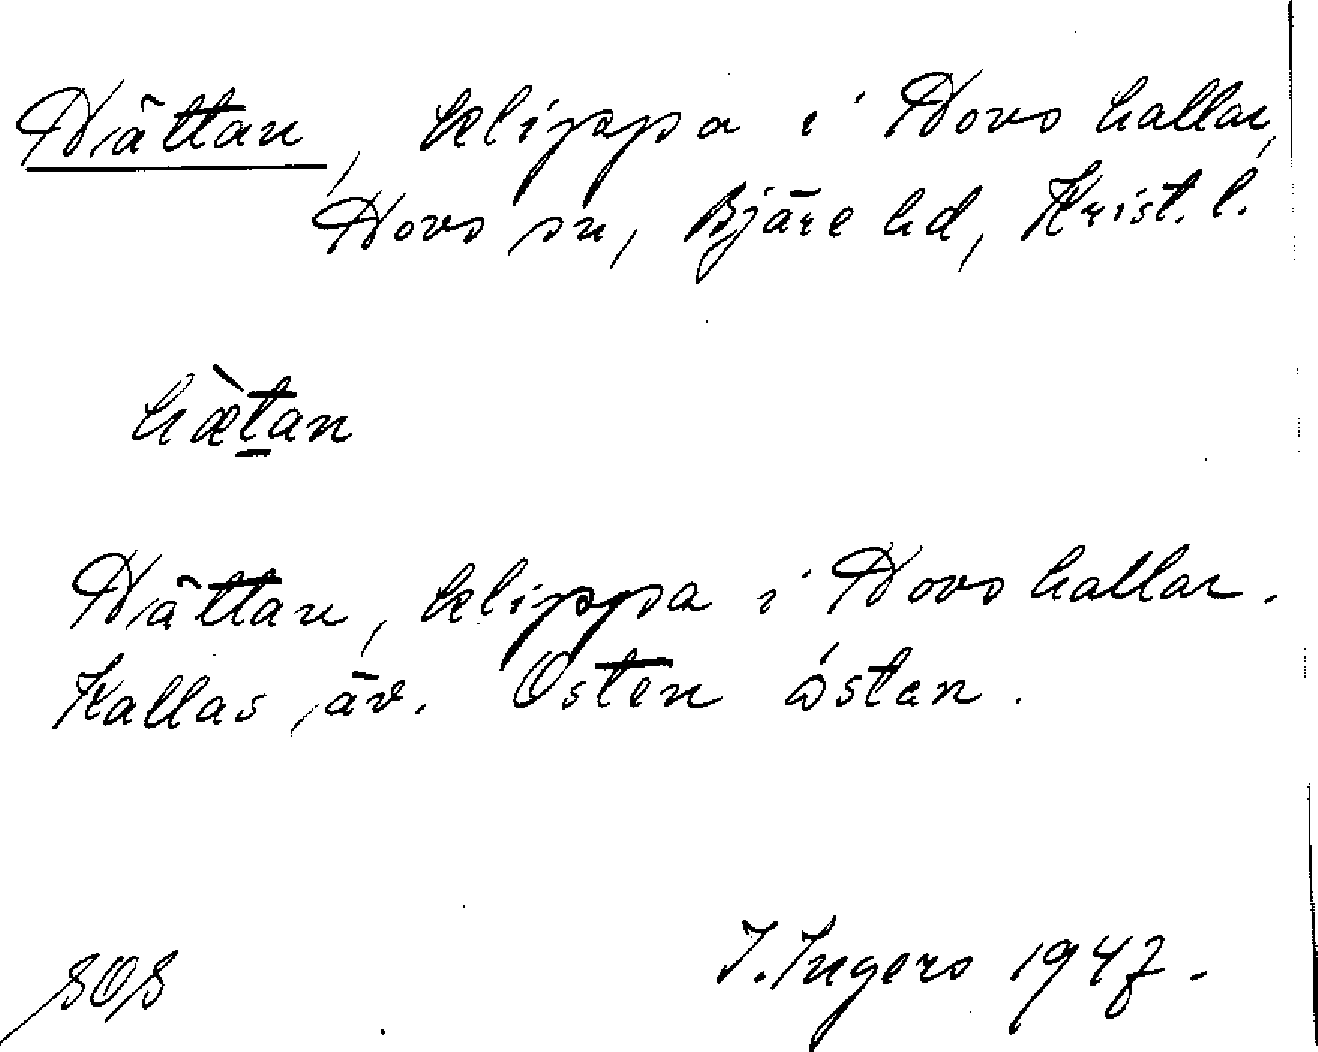 Hättan, klippa i Hovs hallar,
Hovs sn, Bjäre hd, Krist. l.
hæ̀tan
Hättan, klippa i Hovs hallar.
Kallas äv. Osten óstan.
SOS
I. Ingers 1947.